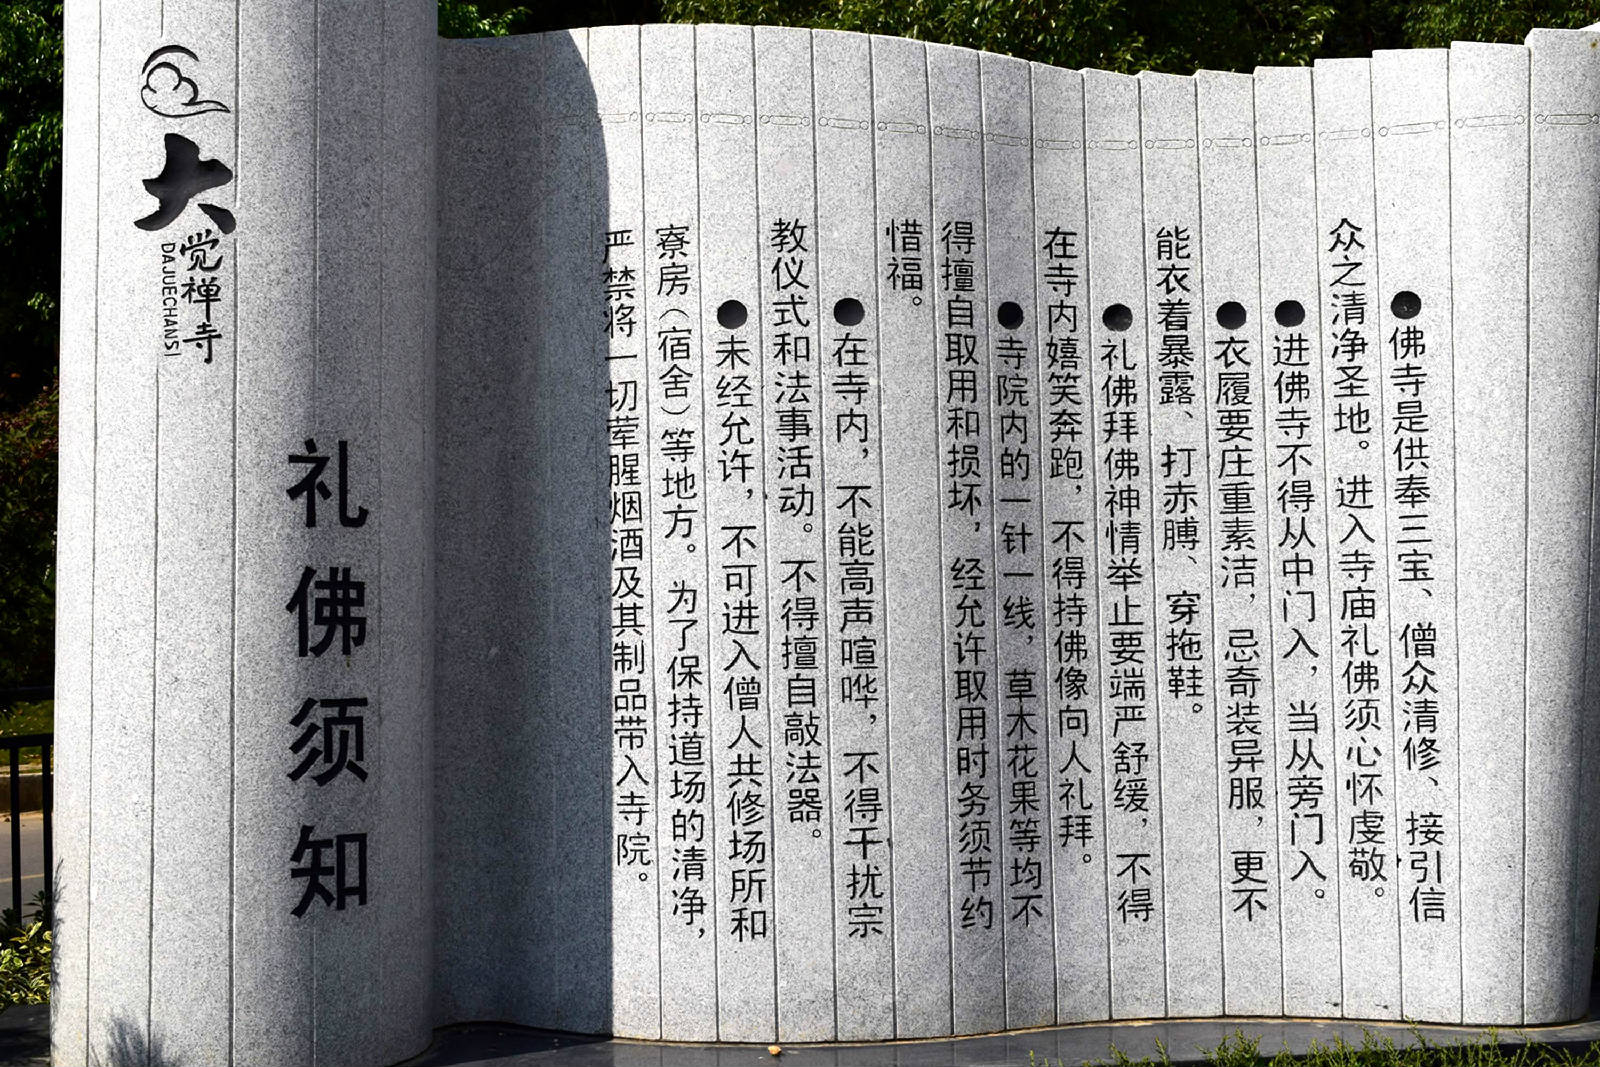 ●佛寺是供奉三宝、僧众清修、接引信
众之清净圣地。进入寺庙礼佛须心怀虔敬。
●进佛寺不得从中门入，当从旁门入。
●衣履要庄重素洁，忌奇装异服，更不
能衣着暴露、打赤膊、穿拖鞋。
●礼佛拜佛神情举止要端严舒缓，不得
在寺内嬉笑奔跑，不得持佛像向人礼拜。
●寺院内的一针一线，草木花果等均不
得擅自取用和损坏，经允许取用时务须节约
惜福。
●在寺内，不能高声喧哗，不得干扰宗
教仪式和法事活动。不得擅自敲法器。
●未经允许，不可进入僧人共修场所和
寮房（宿舍）等地方。为了保持道场的清净，
严禁将一切荤腥烟酒及其制品带入寺院。
礼佛须知
大觉禅寺
DAJUECHANSI